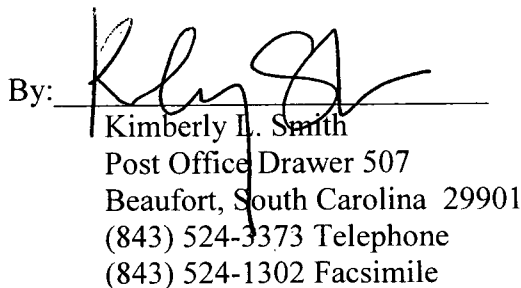 By:
Kimberly L. Smith
Post Office Drawer 507
Beaufort, South Carolina 29901
(843) 524-3373 Telephone
(843) 524-1302 Facsimile